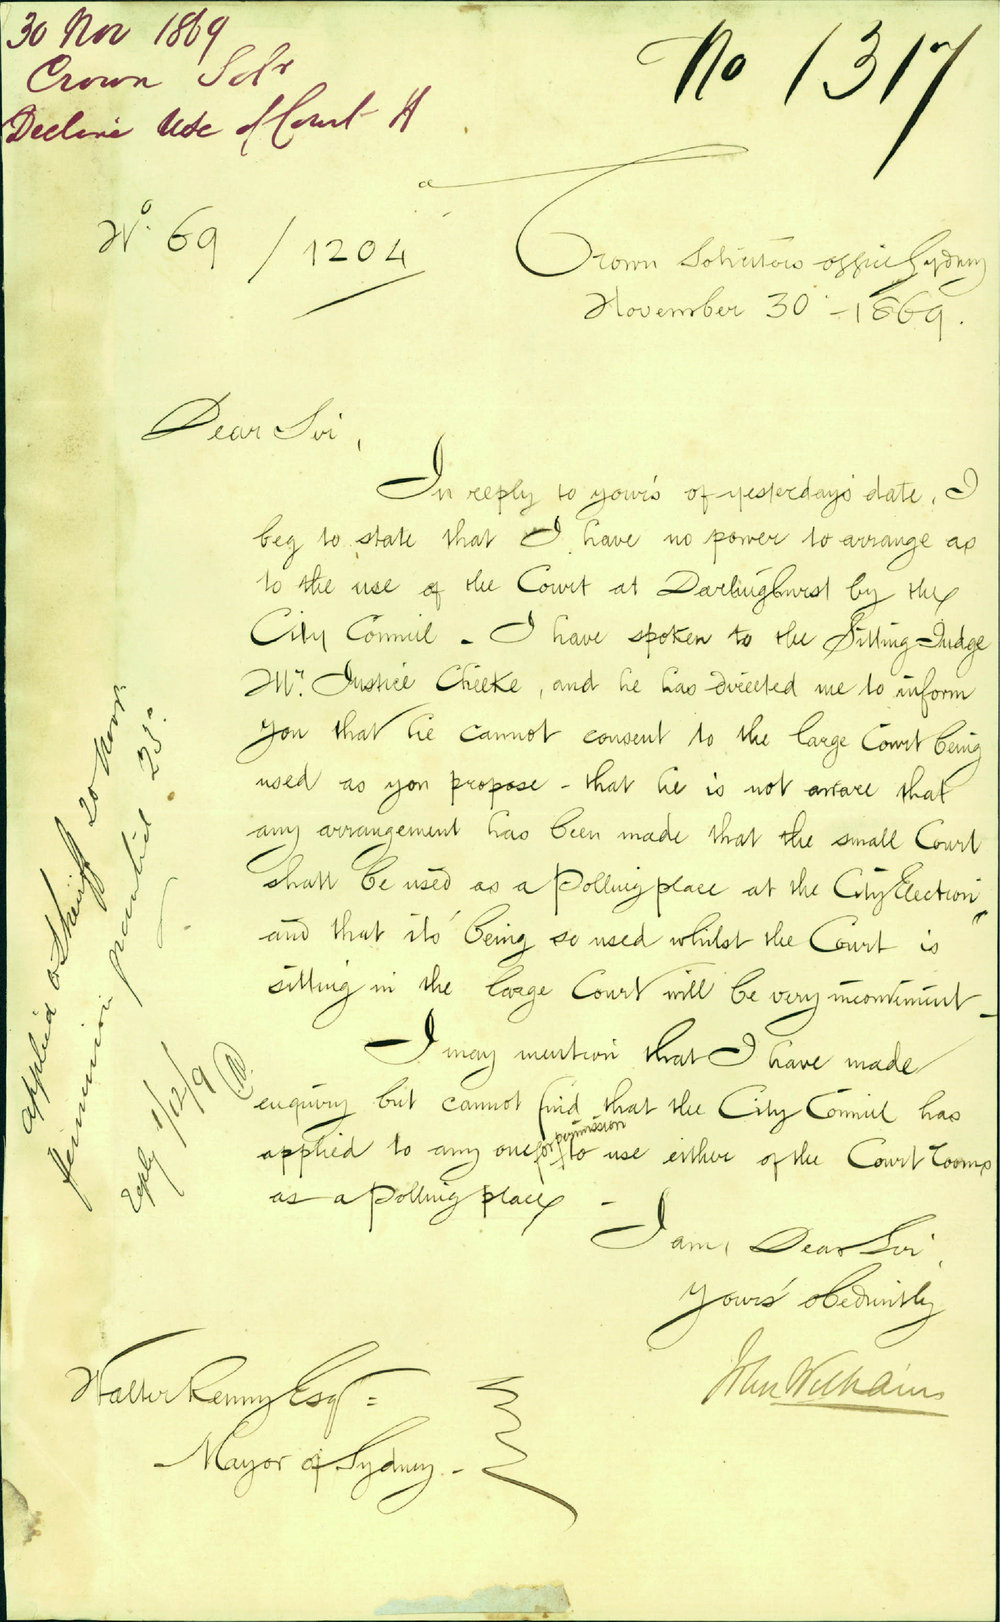 30 Nov 1869
Crown Solr
Decline Use of Court H
No 1317
No. 69 / 1204
Crown Solicitors office Sydney
November 30 - 1869.
Dear Sir,
In reply to your's of yesterday's date, I
beg to state that I have no power to arrange as
to the use of the Court at Darlinghurst by the
City Council - I have spoken to the Sitting Judge
Mr. Justice Cheeke, and he has directed me to inform
you that he cannot consent to the large Court being
used as you propose - that he is not aware that
any arrangement has been made that the small Court
shall be used as a Polling place at the City Election"
and that its' being so used whilst the Court is
sitting in the large Court will be very inconvenient -
I may mention that I have made
enquiry but cannot find that the City Council has
applied to any one for permission to use either of the Court rooms
as a Polling place -
I am, Dear Sir,
Your's obediently
John Williams
Walter Renny Esq =
- Mayor of Sydney -
applied to Sheriff 20 Novr.
permission granted 25o.
reply 1/12/9